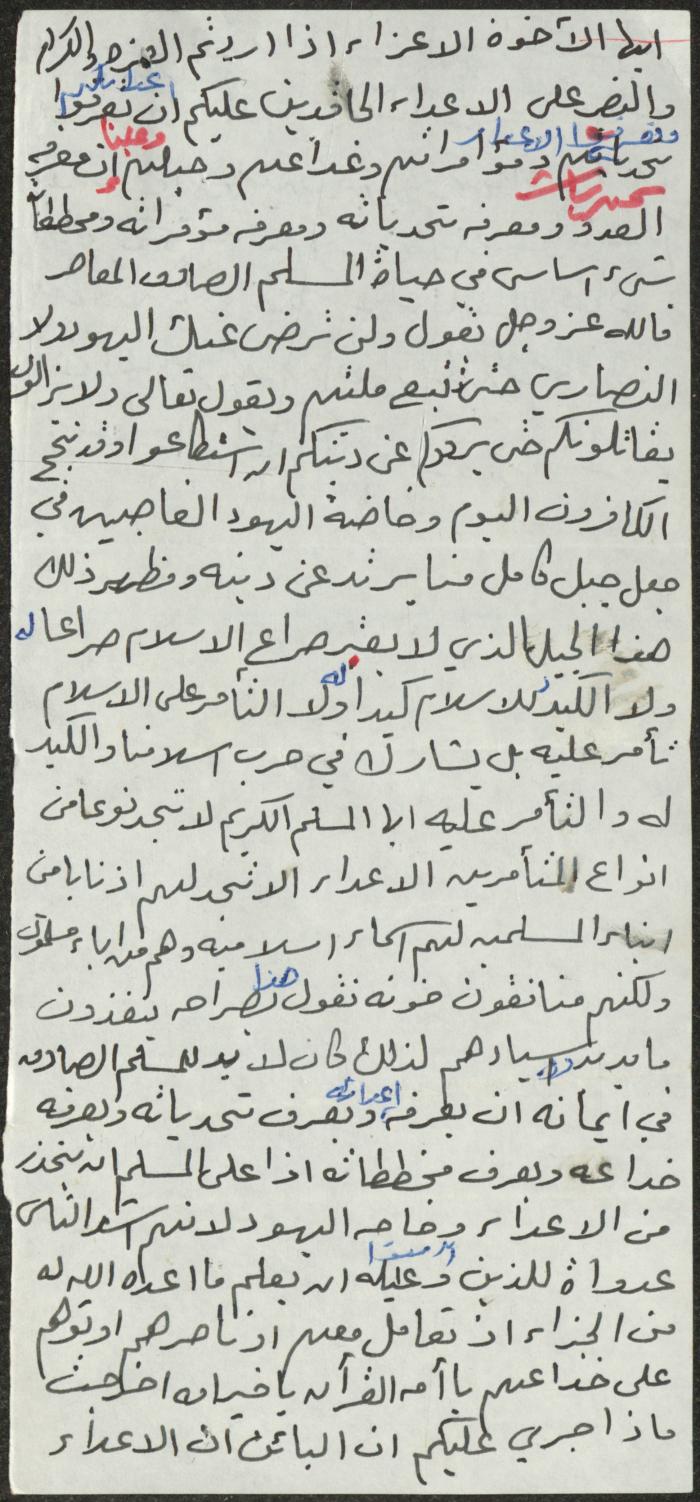 ايها الأخوة الاعزاء اذا اردتم العزة والكرامة
والنصر على الاعداء الحاقدين عليكم ان تعرفوا اعدائكم
تحدياتهم ومؤامراتهم وخداعهم وحيلهم ان معرفة
العدو ومعرفة تحدياته ومعرفة مؤمراته ومخططاته
شيء اساسي في حياة المسلم الصادق المعاصر
فالله عز وجل يقول ولن ترضى عنك اليهود ولا
النصارى حتى تتبع ملتهم ويقول تعالى ولا يزالون
يقاتلونكم حتى يردوكم عن دينكم ان استطاعوا وقد نجح
الكافرون اليوم وخاصة اليهود الغاصبين في
جعل جيل كامل منا يرتد عن دينه ومظهر ذلك
هذا الجيل الذي لا يعتبر صراع الاسلام صراعا له
ولا الكيد للاسلام كيدا له ولا التأمر على الاسلام
تأمر عليه بل يشارك في حرب اسلامنا والكيد
له والتأمر عليه ايها المسلم الكريم لا تجد نوعا من
انواع المتأمرين الاعداء الا تجد لهم اذنابا من
ابناء المسلمين لهم اسماء اسلامية وهم من اباء مسلمين
ولكنهم منافقون خونه نقول هذا بصراحه ينفذون
ما يريد اسيادهم لذلك كان لا بد للمسلم الصادق
في ايمانه ان يعرف اعدائه ويعرف تحدياته ويعرف
خداعه ويعرف مخططاته اذا على المسلم ان يتحذر
من الاعداء وخاصه اليهود لانهم اشد الناس
عدواة للذين امنوا وعليه ان يعلم ما اعده الله له
من الجزاء اذ تعامل معهم او ناصرهم او
على خداعهم يا أمه القرأن يا خير امه اخرجت
ماذا جرى عليكم ان البائن ان الاعداء